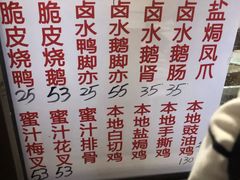 脆皮烧鸭 25
脆皮烧鹅 53
卤水鸭脚亦 25
卤水鹅脚亦 55
卤水鹅肾 35
卤水鹅肠 35
盐焗凤爪
蜜汁梅叉 53
蜜汁花叉 53
蜜汁排骨
本地白切鸡
本地盐焗鸡
本地手撕鸡
本地豉油鸡 130